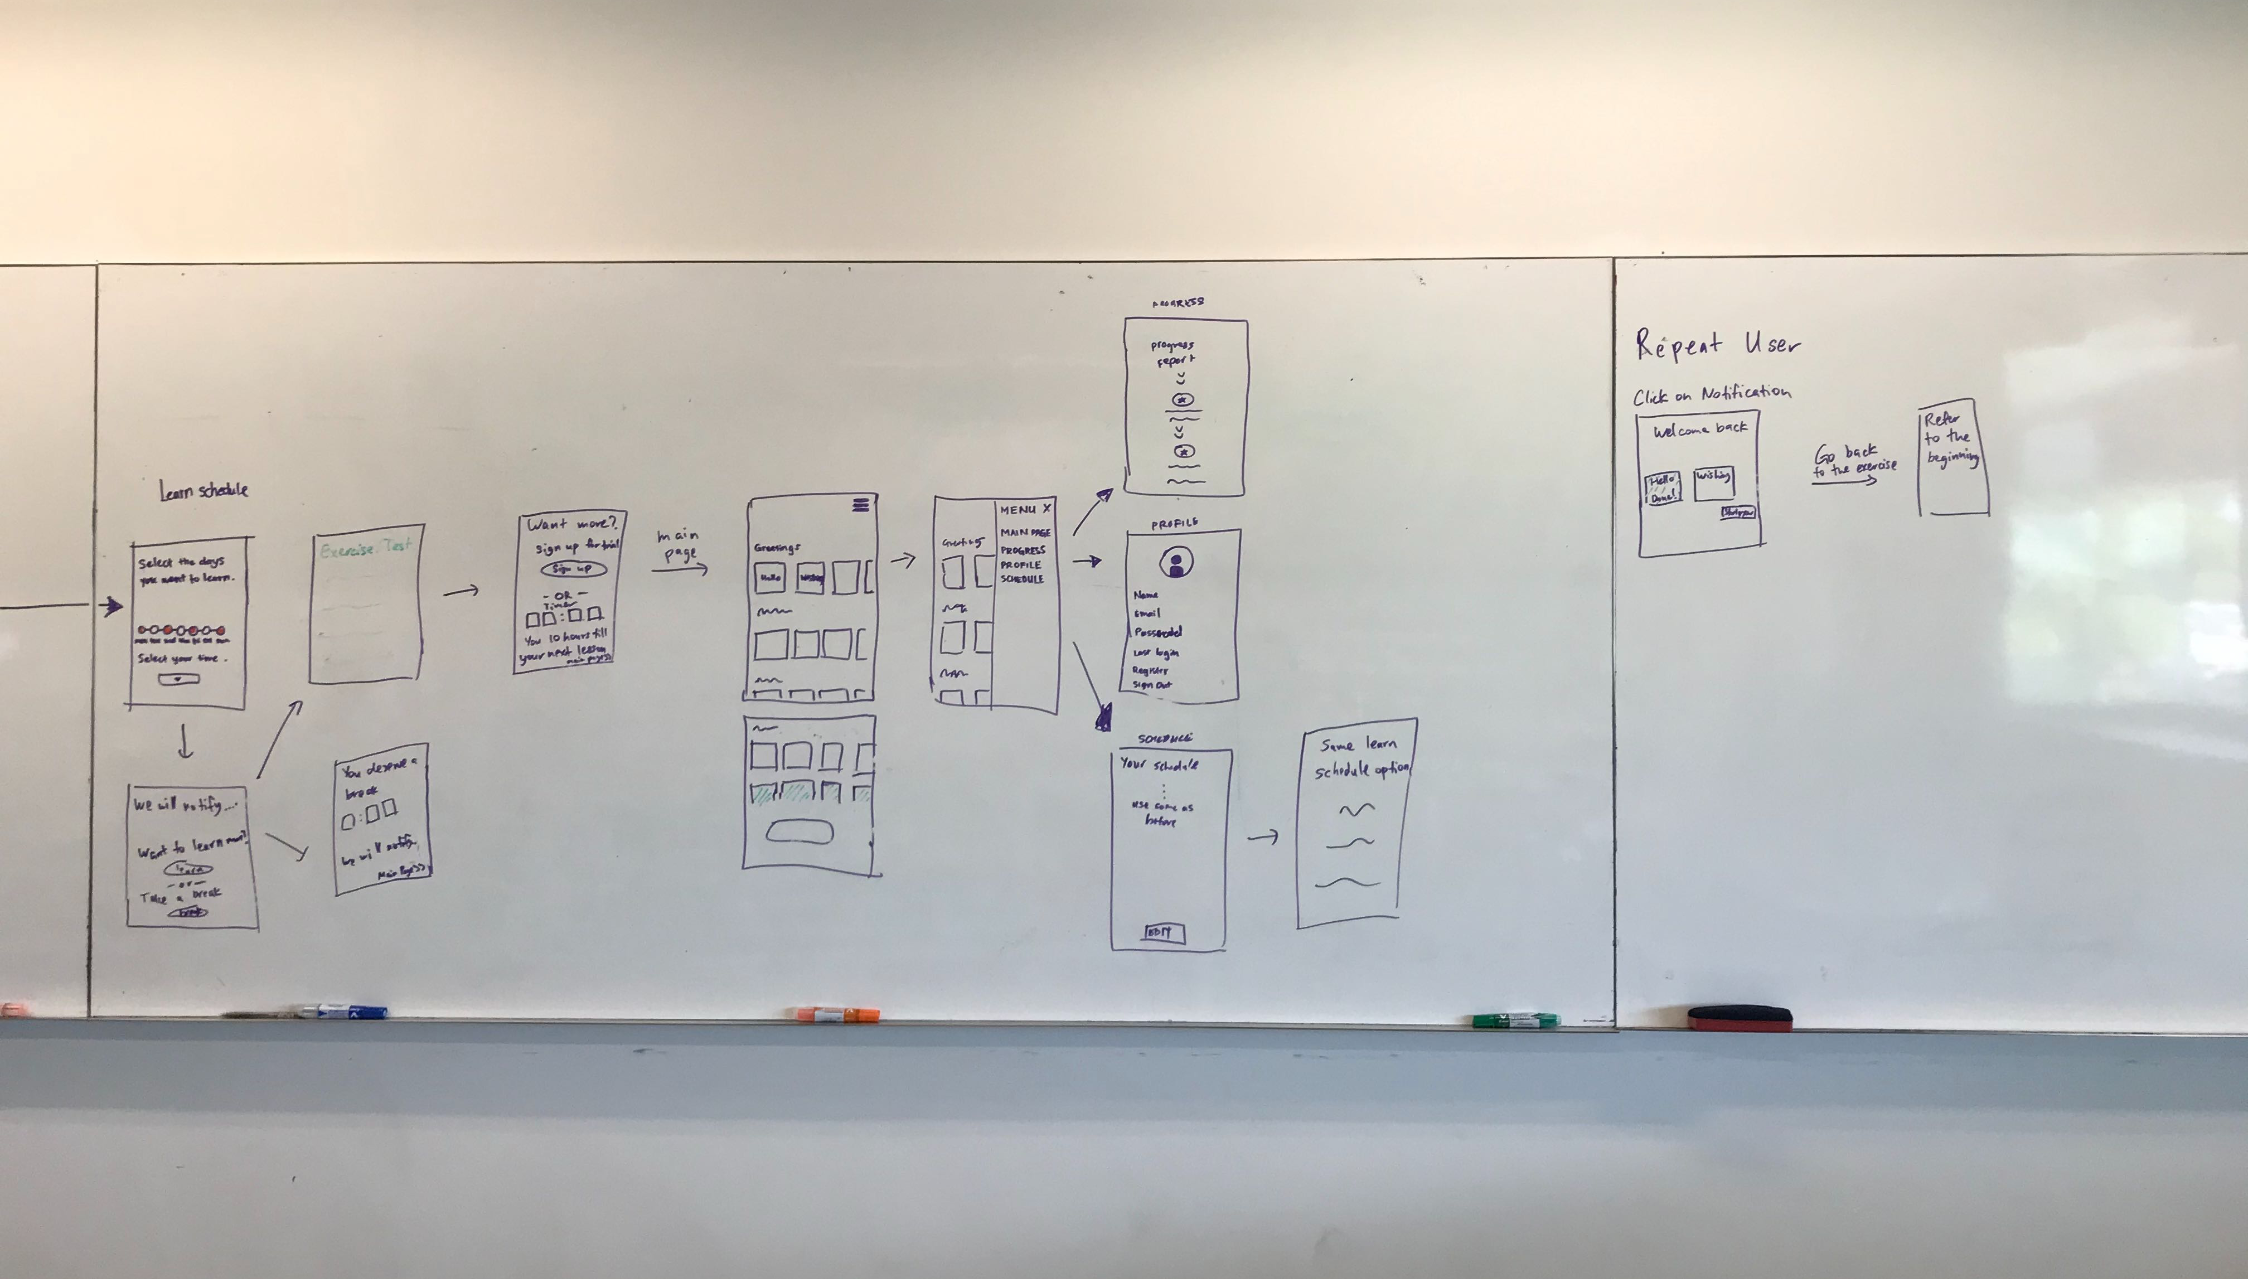 Learn schedule
Select the days
you want to learn.
Select your time.
We will notify....
Want to learn more?
learn
- or -
Take a break
break
Exercise. Test
You deserve a
break
we will notify.
Main Page>>
Want more?
sign up for trial
Sign up
- OR -
Timer
You 10 hours till
your next lesson
main page>>
main
page
Greetings
Hello
Wishing
Greetings
MENU X
MAIN PAGE
PROGRESS
PROFILE
SCHEDULE
PROGRESS
progress
report
PROFILE
Name
Email
Last login
Register
Sign Out
SCHEDULE
Your schedule
same as
before
EDIT
Same learn
schedule option
Repeat User
Click on Notification
Welcome back
Hello
Done!
Wishing
Go back
to the exercise
Refer
to the
beginning